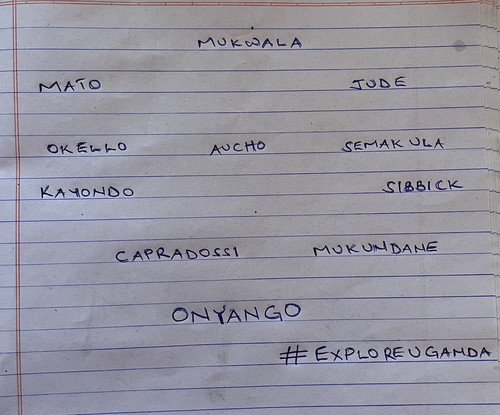 MUKWALA
MATO JUDE
OKELLO AUCHO SEMAKULA
KAYONDO SIBBICK
CAPRADOSSI MUKUNDANE
ONYANGO
#EXPLOREUGANDA